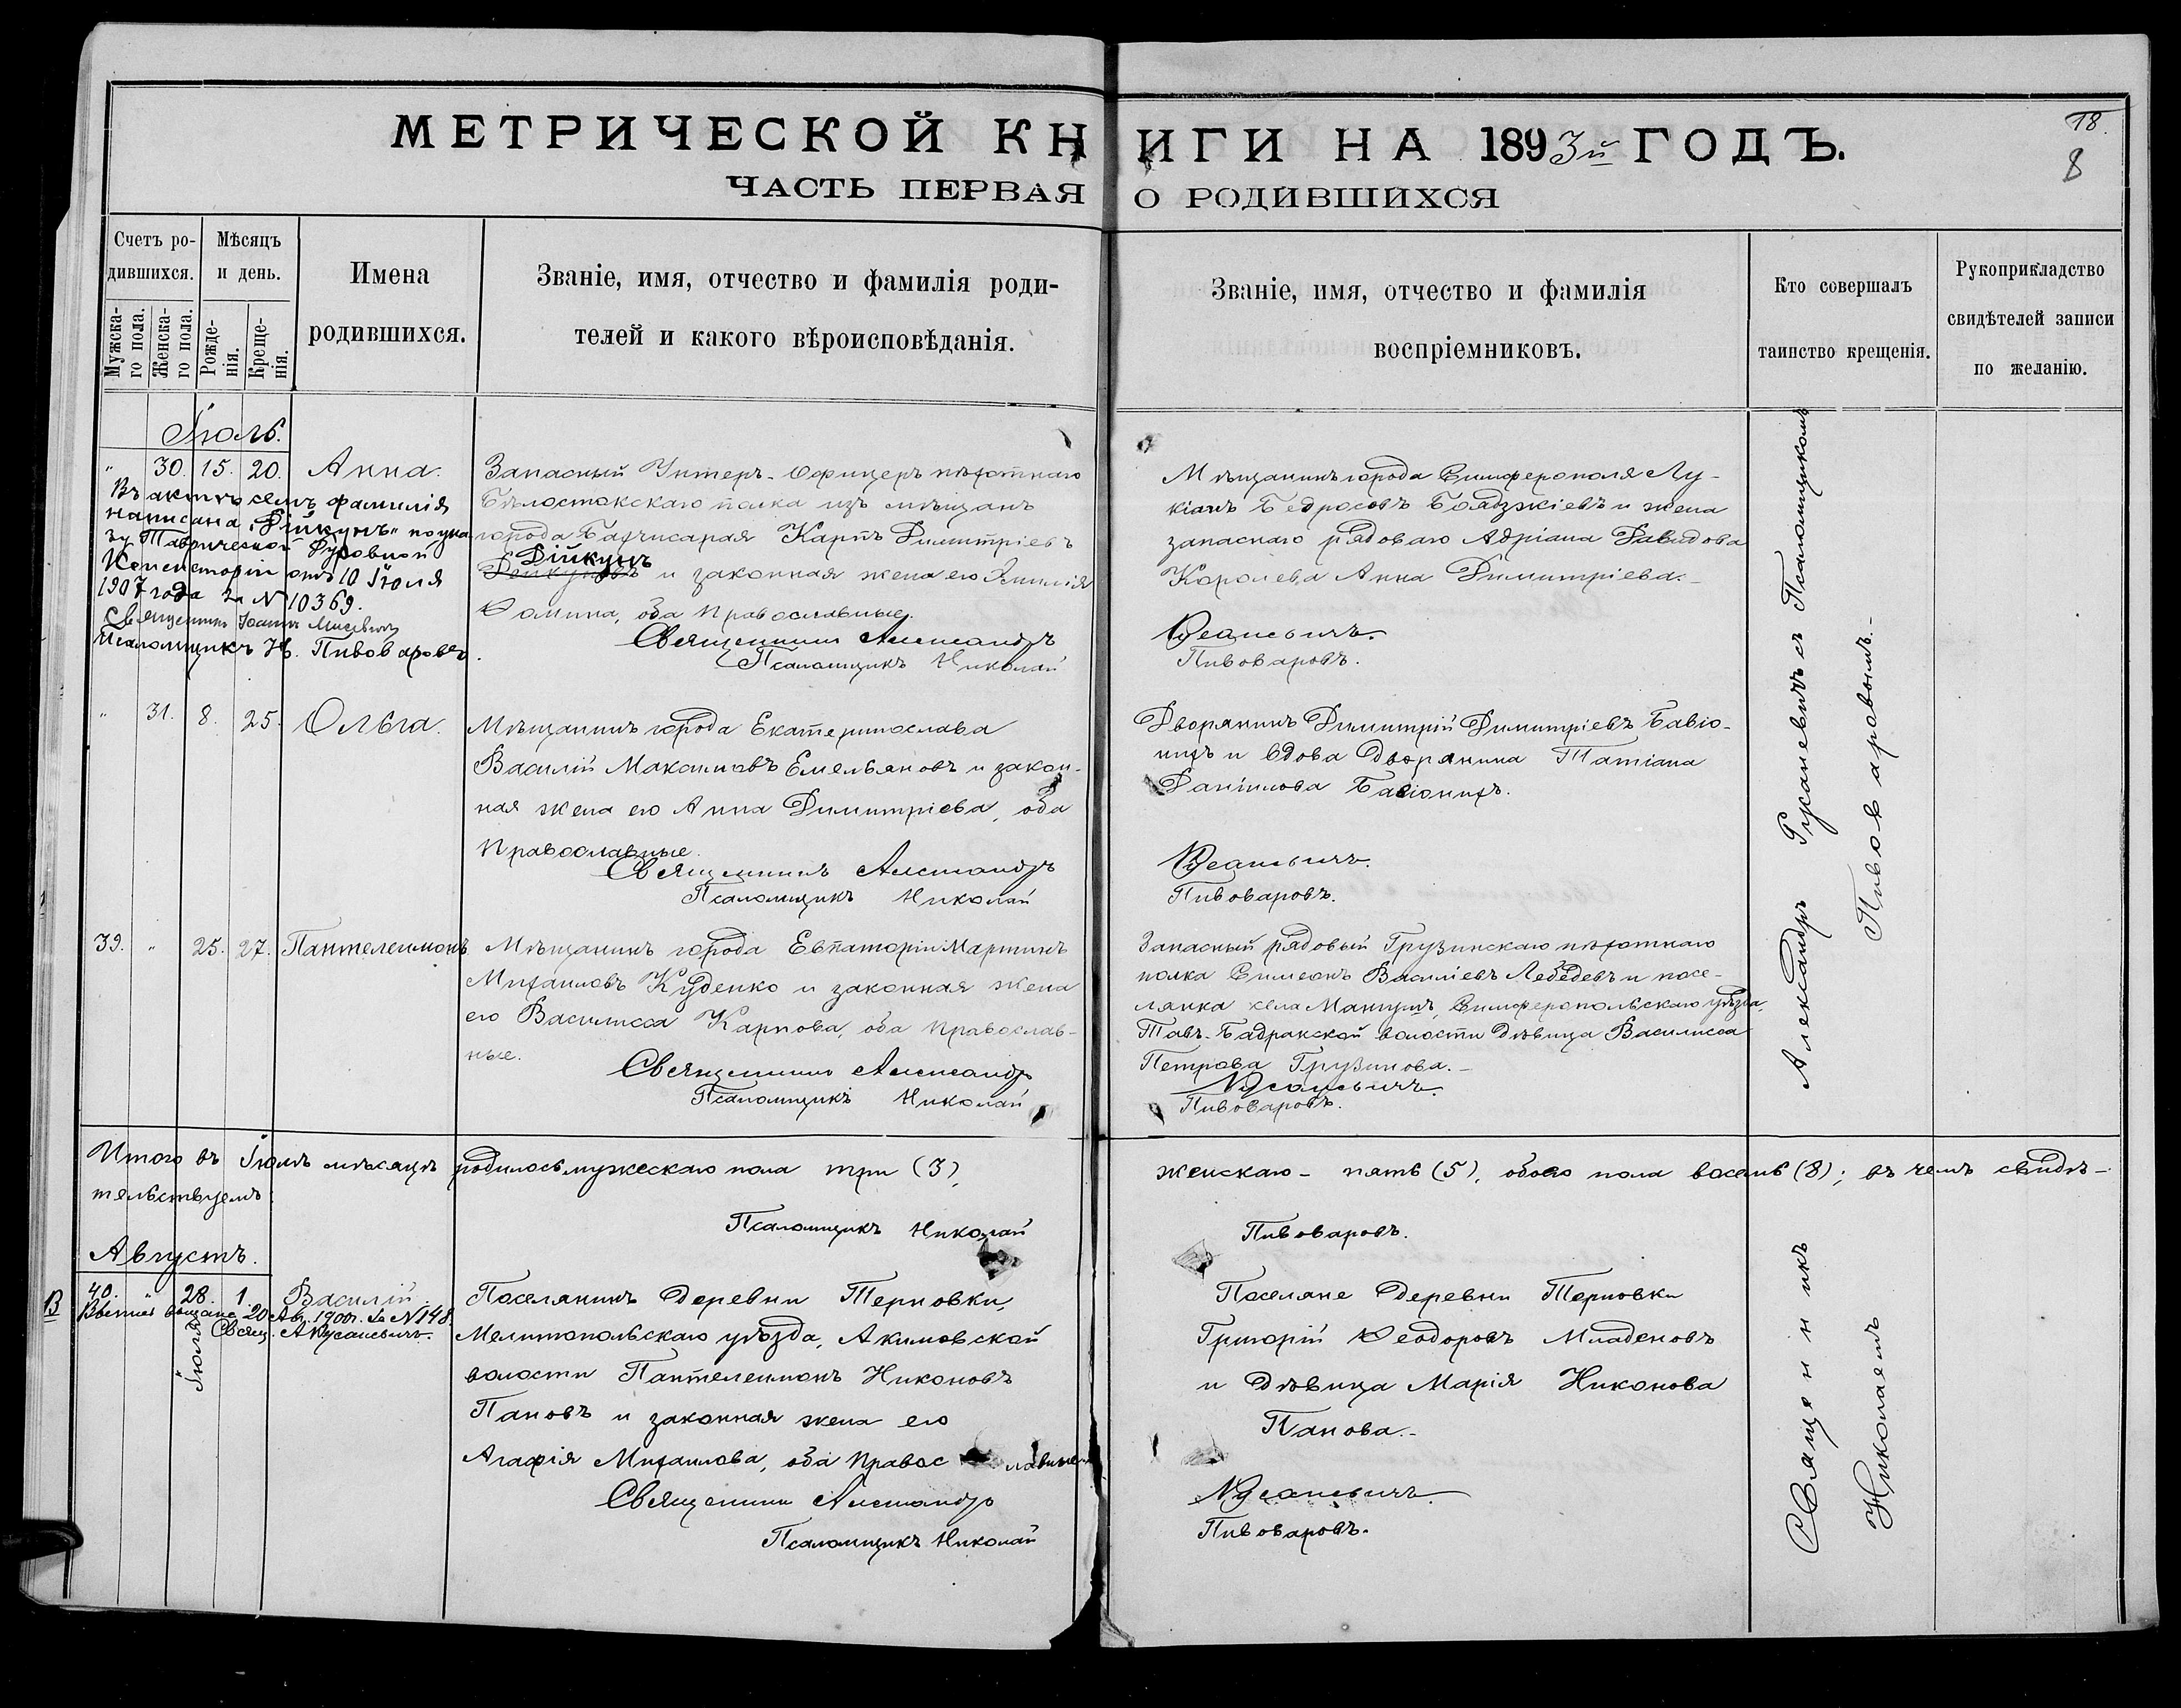 МЕТРИЧЕСКОЙ КНИГИ НА 1893й ГОДЪ.
ЧАСТЬ ПЕРВАЯ О РОДИВШИХСЯ
18.
8
Счетъ ро-
дившихся.
Мужска-
го пола.
Женска-
го пола.
Мѣсяцъ
и день.
Рожде-
нія.
Креще-
нія.
Имена
родившихся.
Званіе, имя, отчество и фамилія роди-
телей и какого вѣроисповѣданія.
Званіе, имя, отчество и фамилія
воспріемниковъ.
Кто совершалъ
таинство крещенія.
Рукоприкладство
свидѣтелей записи
по желанію.
Іюль.
" 30. 15. 20. Анна.
Въ актѣ семъ фамилія
написана "Дійкунъ" по указу
Таврической Духовной
Консисторіи отъ 10 Іюля
1907 года за N 10369.
Священникъ Іоаннъ
Псаломщикъ Н. Пивоваровъ.
Запасный Унтеръ-Офицеръ пѣхотнаго
Бѣлостокскаго полка изъ мѣщанъ
города Бахчисарая Карпъ Димитріевъ
Дійкунъ
и законная жена его Эмилія
Фомина, оба православные.
Священникъ Александръ
Псаломщикъ Николай
Мѣщанинъ города Симферополя Лу-
кіанъ Бедросовъ Бояджіевъ и жена
запаснаго рядоваго Адріана Давидова
Королева Анна Димитріева.-
Русаневичъ.
Пивоваровъ.
" 31. 8. 25. Ольга.
Мѣщанинъ города Екатеринослава
Василій Максимовъ Емельяновъ и закон-
ная жена его Анна Димитріева, оба
православные.
Священникъ Александръ
Псаломщикъ Николай
Дворянинъ Димитрій Димитріевъ Бавіо-
ницъ и вдова дворянина Татіана
Даніилова Бавіоницъ.
Русаневичъ.
Пивоваровъ.
39. " 25. 27. Пантелеимонъ
Мѣщанинъ города Евпаторіи Мартинъ
Михаиловъ Куденко и законная жена
его Василисса Карпова, оба православ-
ные.
Священникъ Александръ
Псаломщикъ Николай
Запасный рядовый Грузинскаго пѣхотнаго
полка Симеонъ Василіевъ Лебедевъ и посе-
лянка села Мангушъ, Симферопольскаго уѣзда,
Тавъ-Бадракской волости дѣвица Василисса
Петрова Грузинова.-
Русаневичъ.
Пивоваровъ.
Итого въ Іюлѣ мѣсяцѣ родилось мужескаго пола три (3), женскаго - пять (5), обоего пола восемь (8); въ чемъ свидѣ-
тельствуемъ:
Псаломщикъ Николай Пивоваровъ.
Августъ.
В
40. " 28. 1. Василій.
Іюля
20 Ав. 1900г. за N 148.
Свящ. А Русаневичъ.
Поселянинъ деревни Терновки,
Мелитопольскаго уѣзда, Акимовской
волости Пантелеимонъ Никоновъ
Пановъ и законная жена его
Агафія Михаилова, оба православные
Священникъ Александръ
Псаломщикъ Николай
Поселяне деревни Терновки
Григорій Феодоровъ Младеновъ
и дѣвица Марія Никонова
Панова.-
Русаневичъ.
Пивоваровъ.
Священникъ Александръ Русаневичъ съ Псаломщикомъ
Николаемъ Пивоваровымъ.-